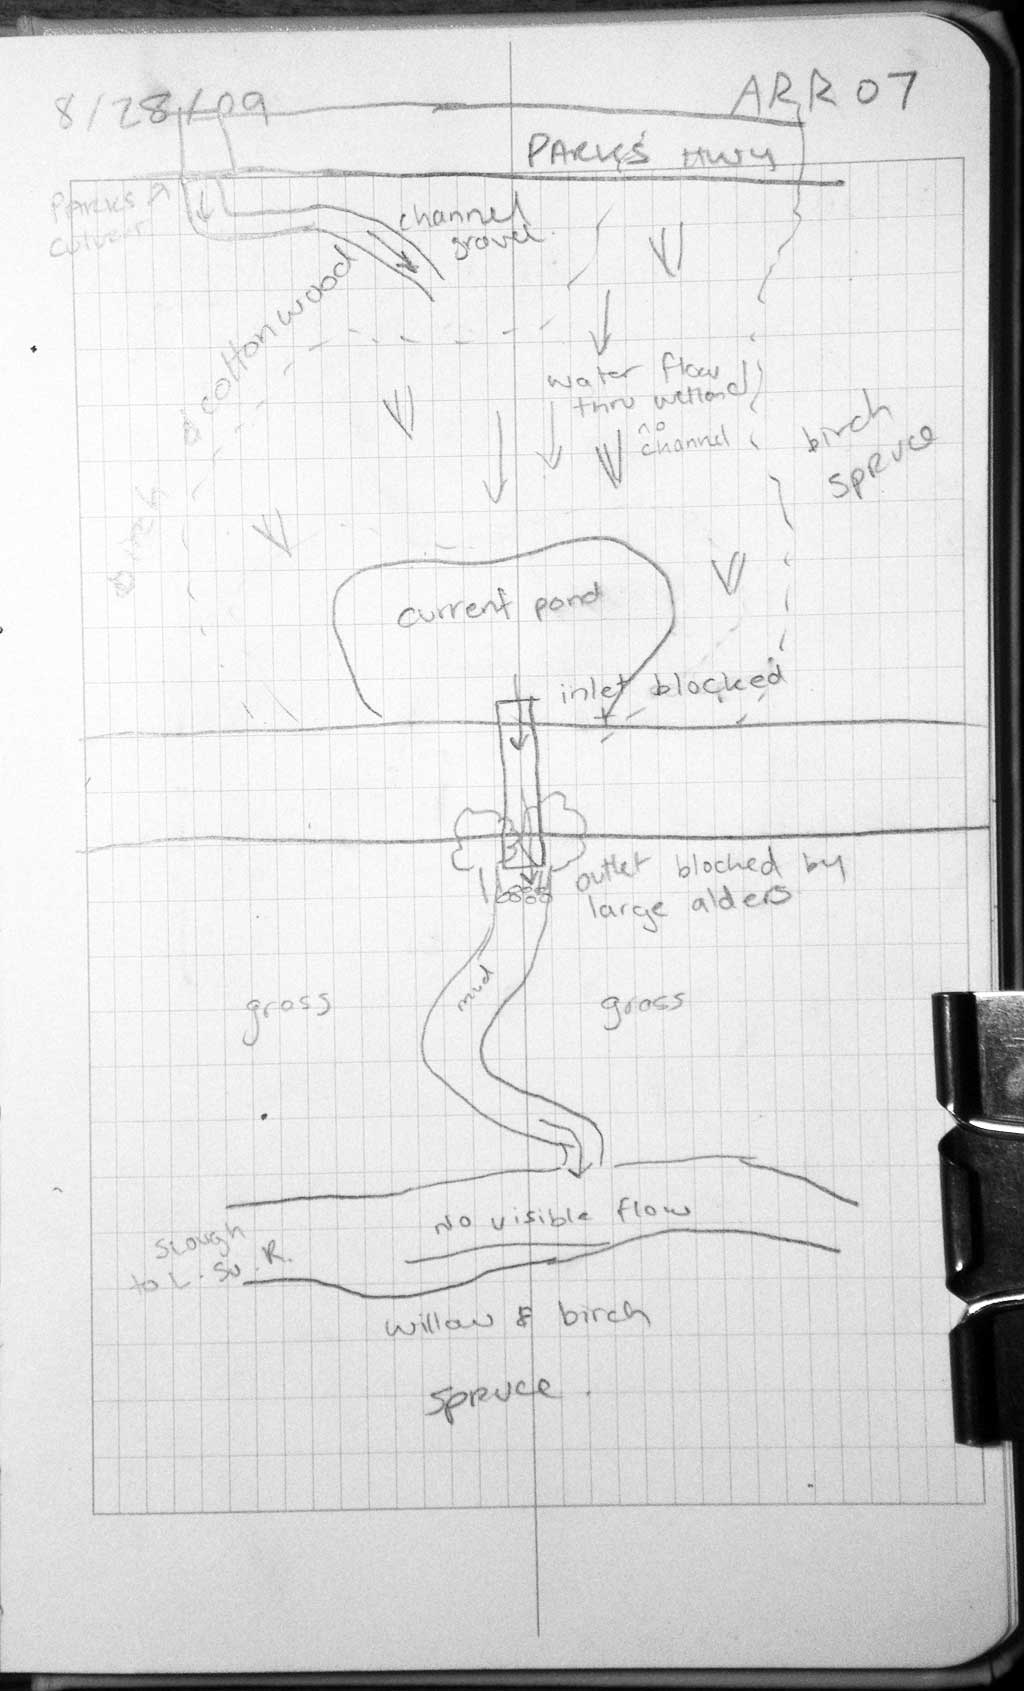 8/28/09
ARR 07
PARKS HWY
PARKS
culvert
channel
gravel
cottonwood
water flow
thru wetland
no
channel
birch
spruce
birch
current pond
inlet blocked
outlet blocked by
large alders
mud
grass
grass
No visible flow
slough
to L. Su. R.
willow & birch
spruce.